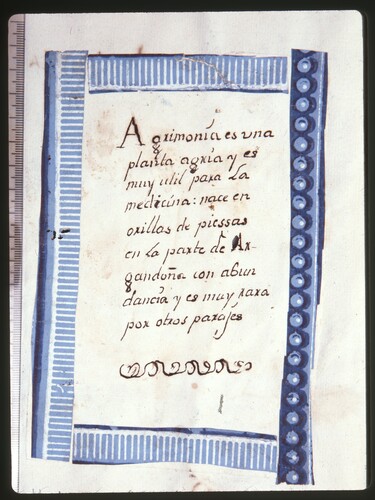 Agrimonía es una
planta agría y es
muy util para la
medicína: nace en
orillas de piessas
en la parte de Ar-
gandoña con abun
dancía y es muy rara
por otros parajes